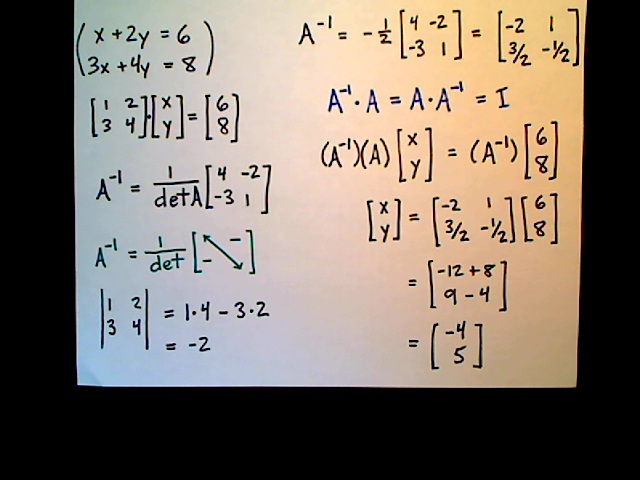 x + 2y = 6
3x + 4y = 8
[1 2; 3 4]·[x; y] = [6; 8]
A⁻¹ = 1/detA [4 -2; -3 1]
A⁻¹ = 1/det [↖↘ -; -]
|1 2; 3 4| = 1·4 - 3·2
= -2
A⁻¹ = -1/2 [4 -2; -3 1] = [-2 1; 3/2 -1/2]
A⁻¹·A = A·A⁻¹ = I
(A⁻¹)(A)[x; y] = (A⁻¹)[6; 8]
[x; y] = [-2 1; 3/2 -1/2][6; 8]
= [-12 + 8; 9 - 4]
= [-4; 5]